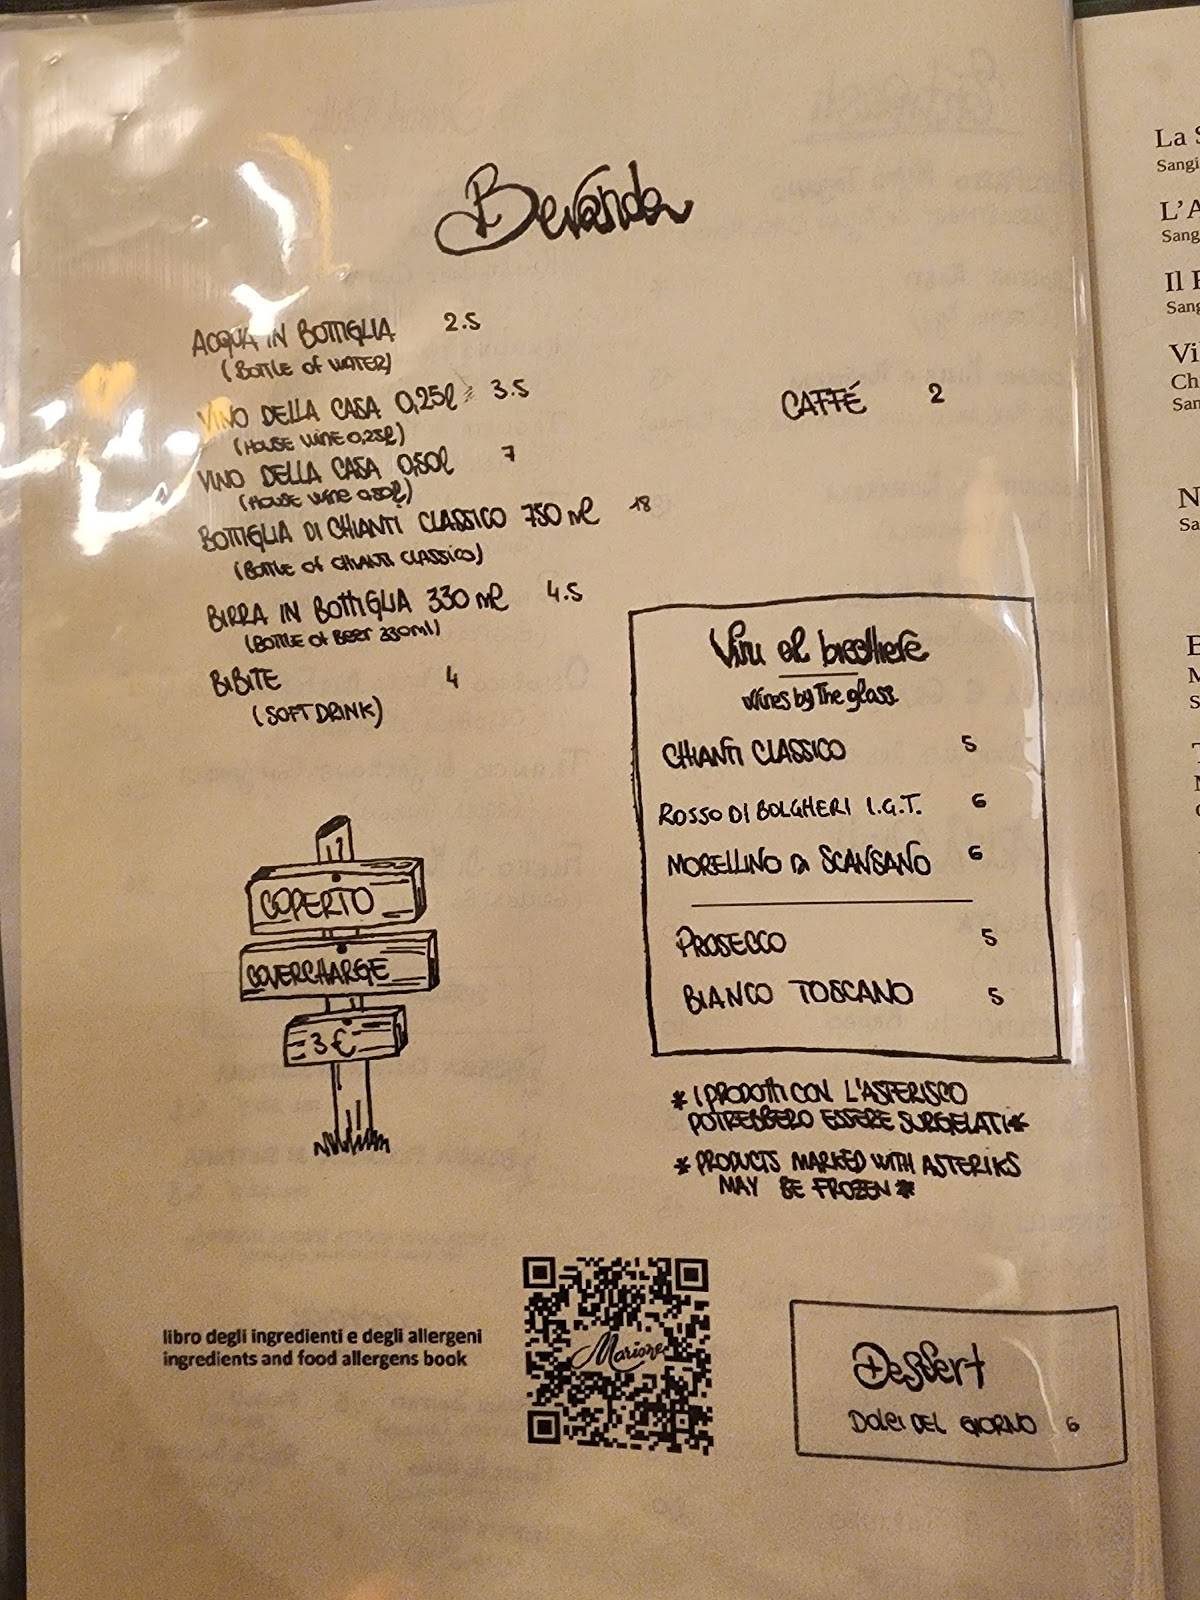 Bevande
ACQUA IN BOTTIGLIA 2.5
(BOTTLE OF WATER)
VINO DELLA CASA 0,25l 3.5
(HOUSE WINE 0,25l)
VINO DELLA CASA 0,50l 7
(HOUSE WINE 0,50l)
BOTTIGLIA DI CHIANTI CLASSICO 750 ml 18
(BOTTLE OF CHIANTI CLASSICO)
BIRRA IN BOTTIGLIA 330 ml 4.5
(BOTTLE OF BEER 330ml)
BIBITE 4
(SOFT DRINK)
CAFFÉ 2
Vini al bicchiere
Wines by The glass
CHIANTI CLASSICO 5
ROSSO DI BOLGHERI I.G.T. 6
MORELLINO DI SCANSANO 6
PROSECCO 5
BIANCO TOSCANO 5
COPERTO
COVERCHARGE
3 €
* I PRODOTTI CON L'ASTERISCO
POTREBBERO ESSERE SURGELATI*
* PRODUCTS MARKED WITH ASTERIKS
MAY BE FROZEN *
libro degli ingredienti e degli allergeni
ingredients and food allergens book
Marione
Dessert
DOLCI DEL GIORNO 6
La S
Sangi
L'A
Sang
Il
Sang
Vi
Ch
San
N
Sa